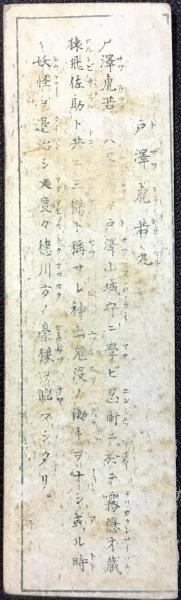 戸澤虎若丸
戸澤虎若丸ハ父戸澤山城守ニ學ビ忍術ニ於テ霧隠才蔵
猿飛佐助ト共ニ三傑ト稱サレ神出鬼没ノ働キヲナシ或ル時
ハ妖怪ヲ退治シ又度々德川方ノ豪傑ヲ悩マシタリ。